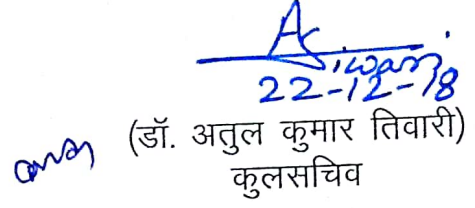 22-12-18
(डॉ. अतुल कुमार तिवारी)
कुलसचिव